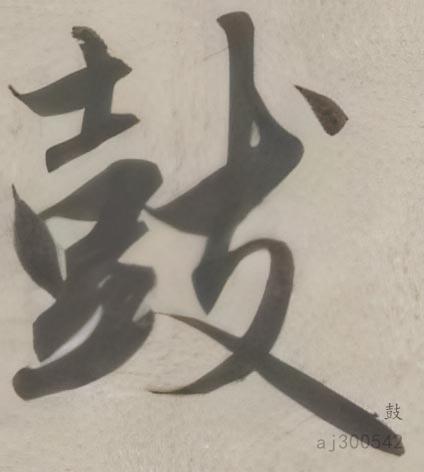 鼓
鼓
aj300542